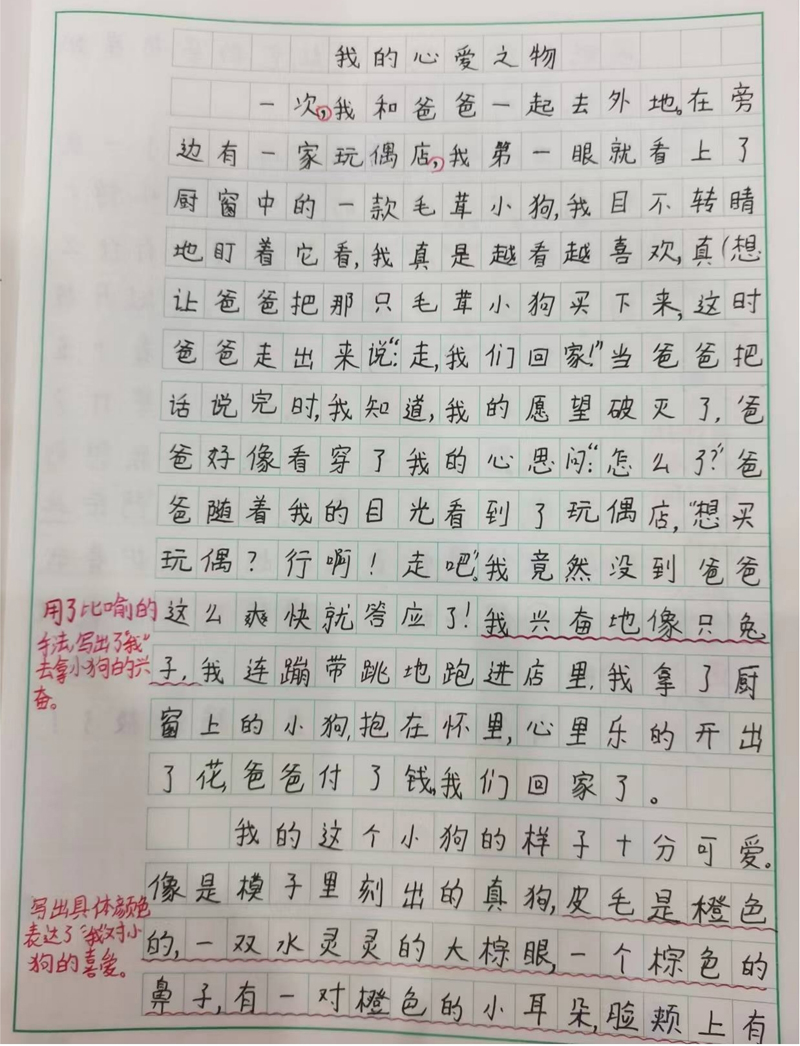 我的心爱之物
一次,我和爸爸一起去外地。在旁
边有一家玩偶店,我第一眼就看上了
厨窗中的一款毛茸小狗,我目不转睛
地盯着它看,我真是越看越喜欢,真(想
让爸爸把那只毛茸小狗买下来,这时
爸爸走出来说:“走,我们回家!”当爸爸把
话说完时,我知道,我的愿望破灭了,爸
爸好像看穿了我的心思问:“怎么了?”爸
爸随着我的目光看到了玩偶店,“想买
玩偶?行啊!走吧”。我竟然没到爸爸
这么爽快就答应了!我兴奋地像只兔
子,我连蹦带跳地跑进店里,我拿了厨
窗上的小狗,抱在怀里,心里乐的开出
了花,爸爸付了钱,我们回家了。
我的这个小狗的样子十分可爱。
像是模子里刻出的真狗,皮毛是橙色
的,一双水灵灵的大棕眼,一个棕色的
鼻子,有一对橙色的小耳朵,脸颊上有
用了比喻的
手法,写出了“我”
去拿小狗的兴
奋。
写出具体颜色
表达了“我”对小
狗的喜爱。